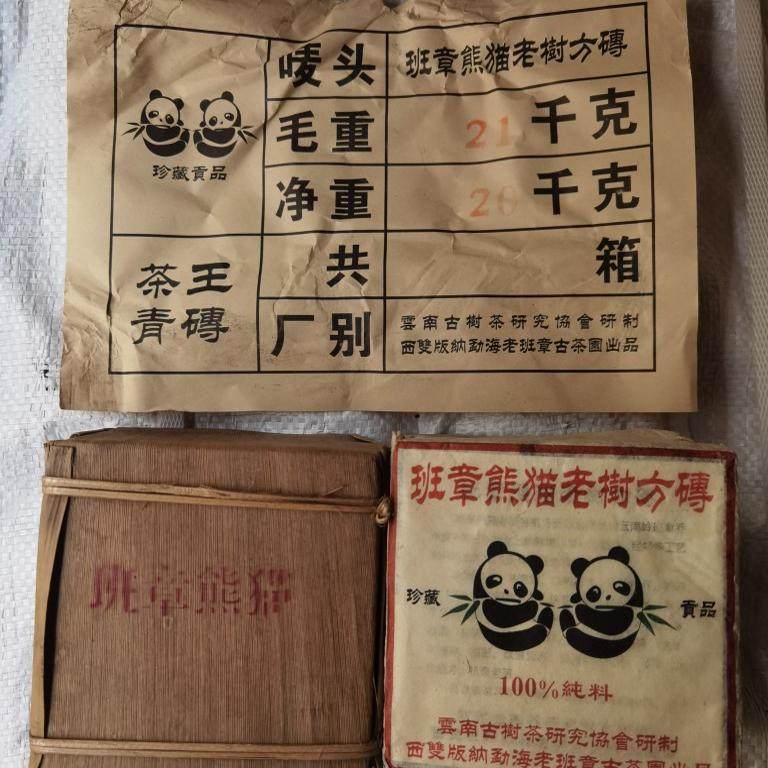 唛头 班章熊猫老樹方磚
毛重 21千克
珍藏貢品
净重 20千克
共 箱
茶王
青磚
厂别 雲南古樹茶研究協會研制
西雙版納勐海老班章古茶園出品
班章熊猫
班章熊猫老樹方磚
珍藏 貢品
100%純料
雲南古樹茶研究協會研制
西雙版納勐海老班章古茶園出品